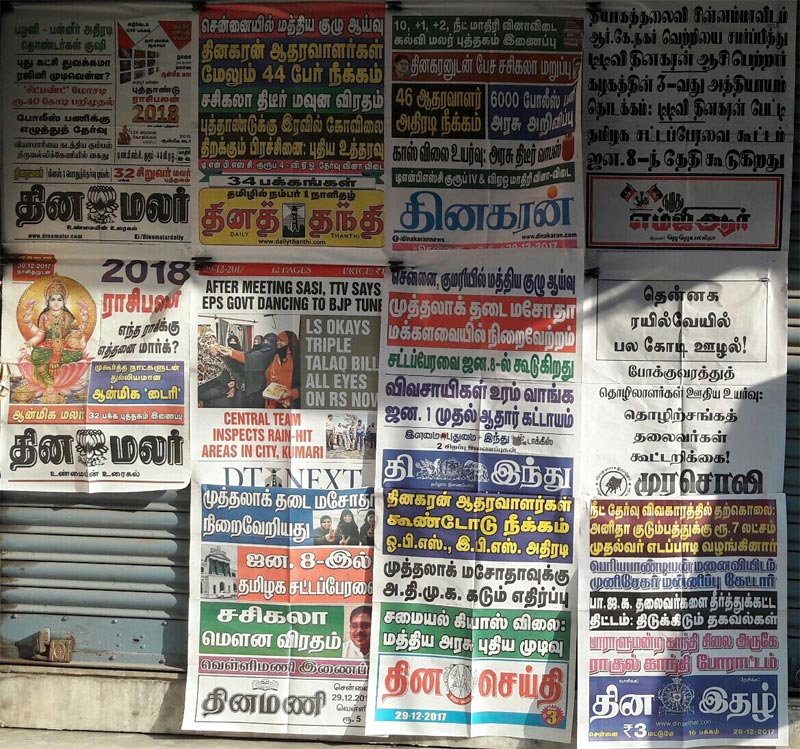 பழனி - பன்னீர் அதிரடி
தொண்டர்கள் குஷி
புது கட்சி துவக்கமா
ரஜினி முடிவென்ன?
'சிட்பண்ட்' மோசடி
ரூ.40 கோடி பறிமுதல்
போலீஸ் பணிக்கு
எழுத்துத் தேர்வு
புத்தாண்டு
ராசிபலன்
2018
32 சிறுவர் மலர்
தின மலர்
உண்மையின் உரைகல்
www.dinamalar.com
/Dinamalardaily
சென்னையில் மத்திய குழு ஆய்வு
தினகரன் ஆதரவாளர்கள்
மேலும் 44 பேர் நீக்கம்
சசிகலா திடீர் மவுன விரதம்
புத்தாண்டுக்கு இரவில் கோவிலை
திறக்கும் பிரச்சினை: புதிய உத்தரவு
டி.என்.பி.எஸ்.சி. குரூப் 4 - வி.ஏ.ஓ. தேர்வு வினா விடை
34 பக்கங்கள்
தமிழில் நம்பர் 1 நாளிதழ்
தினத் தந்தி
DAILY THANTHI
www.dailythanthi.com
10, +1, +2, நீட் மாதிரி வினாவிடை
கல்வி மலர் புத்தகம் இணைப்பு
தினகரனுடன் பேச சசிகலா மறுப்பு
46 ஆதரவாளர்
அதிரடி நீக்கம்
6000 போலீஸ்
அரசு அறிவிப்பு
காஸ் விலை உயர்வு: அரசு திடீர் வாபஸ்
டிஎன்பிஎஸ்சி குரூப் IV & விஏஓ மாதிரி வினா-விடை
தினகரன்
/dinakarannews
www.dinakaran.com
29-12-2017
தியாகத்தலைவி சின்னம்மாவிடம்
ஆர்.கே.நகர் வெற்றியை சமர்ப்பித்து
டிடிவி தினகரன் ஆசி பெற்றார்
கழகத்தின் 3-வது அத்தியாயம்
தொடக்கம்: டிடிவி தினகரன் பேட்டி
தமிழக சட்டப்பேரவை கூட்டம்
ஜன.8-ந் தேதி கூடுகிறது
நமது
எம்ஜிஆர்
30.12.2017
2018
ராசிபலன்
எந்த ராசிக்கு
எத்தனை மார்க்?
முகூர்த்த நாட்களுடன்
துல்லியமான
ஆன்மிக 'டைரி'
ஆன்மிக மலர்
32 பக்க புத்தகம் இணைப்பு
தின மலர்
உண்மையின் உரைகல்
29-12-2017
12 PAGES
AFTER MEETING SASI, TTV SAYS
EPS GOVT DANCING TO BJP TUNE
LS OKAYS
TRIPLE
TALAO BILL
ALL EYES
ON RS NOW
CENTRAL TEAM
INSPECTS RAIN-HIT
AREAS IN CITY, KUMARI
DT NEXT
சென்னை, குமரியில் மத்திய குழு ஆய்வு
முத்தலாக் தடை மசோதா
மக்களவையில் நிறைவேற்றம்
சட்டப்பேரவை ஜன.8-ல் கூடுகிறது
விவசாயிகள் உரம் வாங்க
ஜன. 1 முதல் ஆதார் கட்டாயம்
இளமை புதுமை
இந்து டாக்கீஸ்
2 சிறப்பு இணைப்புகள்
தி இந்து
தென்னக
ரயில்வேயில்
பல கோடி ஊழல்!
போக்குவரத்துத்
தொழிலாளர்கள் ஊதிய உயர்வு:
தொழிற்சங்கத்
தலைவர்கள்
கூட்டறிக்கை!
முரசொலி
முத்தலாக் தடை மசோதா
நிறைவேறியது
ஜன. 8-இல்
தமிழக சட்டப்பேரவை
சசிகலா
மௌன விரதம்
வெள்ளிமணி இணைப்பு
தினமணி
சென்னை
29.12.2017
வெள்ளி
ரூ. 5
தினகரன் ஆதரவாளர்கள்
கூண்டோடு நீக்கம்
ஓ.பி.எஸ்., இ.பி.எஸ். அதிரடி
முத்தலாக் மசோதாவுக்கு
அ.தி.மு.க. கடும் எதிர்ப்பு
சமையல் கியாஸ் விலை:
மத்திய அரசு புதிய முடிவு
தின செய்தி
29-12-2017
3
நீட் தேர்வு விவகாரத்தில் தற்கொலை:
அனிதா குடும்பத்துக்கு ரூ.7 லட்சம்
முதல்வர் எடப்பாடி வழங்கினார்
பெரியபாண்டியன் மனைவியிடம்
முனிசேகர் மன்னிப்பு கேட்டார்
பா.ஜ.க. தலைவர்களை தீர்த்துக்கட்ட
திட்டம்: திடுக்கிடும் தகவல்கள்
பாராளுமன்ற காந்தி சிலை அருகே
ராகுல் காந்தி போராட்டம்
தின இதழ்
சென்னை ₹3 மட்டுமே
16 பக்கம்
29-12-2017